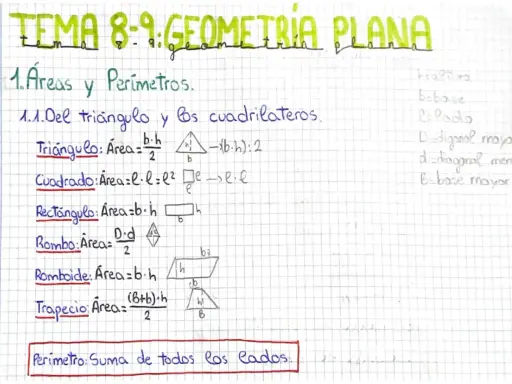 TEMA 8-9: GEOMETRÍA PLANA
tema 8-9: geometría plana
1. Áreas y Perímetros.
1.1. Del triángulo y los cuadrilateros.
Triángulo: Área= b·h/2 h b →(b·h):2
Cuadrado: Área= l·l= l² l l →l·l
Rectángulo: Área= b·h h b
Rombo: Área= D·d/2
Romboide: Área= b·h h b
Trapecio: Área= (B+b)·h/2 b h B
Perímetro: Suma de todos los lados.
b=base
l=lado
D=
d=diagonal
B=base mayor